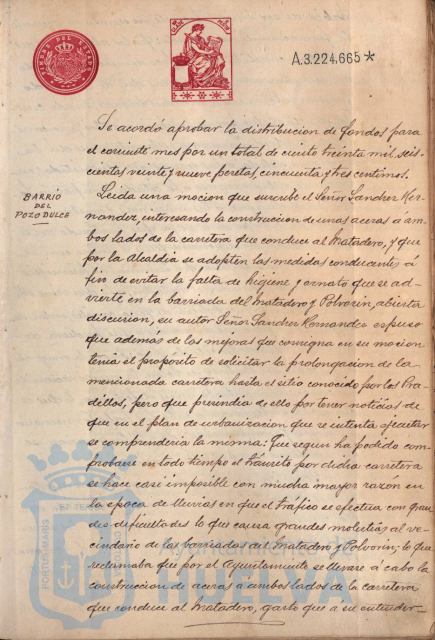 TIMBRE DEL ESTADO
A.3.224.665*
Se acordó aprobar la distribucion de fondos para
el corriente mes por un total de ciento treinta mil, seis-
cientas veinte y nueve pesetas, cincuenta y tres centimos.
BARRIO
DEL
POZO DULCE
Leida una mocion que suscribe el Señor Sanchez Her-
nandez, interesando la construccion de unas aceras á am-
bos lados de la carretera que conduce al Matadero, y que
por la Alcaldía se adopten las medidas conducentes á
fin de evitar la falta de higiene y ornato que se ad-
vierte en la barriada del Matadero y Polvorin, abierta
discusion, su autor Señor Sanchez Hernandez expuso
que además de las mejoras que consigna en su mocion
tenia el propósito de solicitar la prolongacion de la
mencionada carretera hasta el sitio conocido por los Pra-
dillos, pero que prescindia de ello por tener noticias de
que en el plan de urbanizacion que se intenta ejecutar
se comprenderia la misma: Que segun ha podido com-
probarse en todo tiempo el tránsito por dicha carretera
se hace casi imposible con mucha mayor razón en
la epoca de lluvias en que el tráfico se efectua con gran-
des dificultades lo que causa grandes molestias al ve-
cindario de las barriadas del Matadero y Polvorin; lo que
reclamaba que por el Ayuntamiento se llevase á cabo la
construccion de aceras á ambos lados de la carretera
que conduce al Matadero, gasto que á su entender-